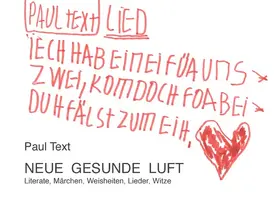 PAUL TEXT LIED
IECH HAB EINEI FÖA UNS
ZWEI, KOM DOCH FOA BEI
DU FÄLST ZUM EIH,
Paul Text
NEUE GESUNDE LUFT
Literate, Märchen, Weisheiten, Lieder, Witze